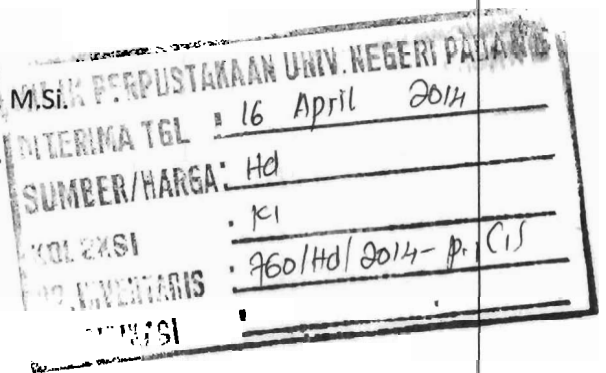 MILIK PERPUSTAKAAN UNIV. NEGERI PADANG
M.Si.
DITERIMA TGL : 16 April 2014
SUMBER/HARGA : Hd
KOLEKSI : KI
INVENTARIS : 760/Hd/2014-p.1 (1)